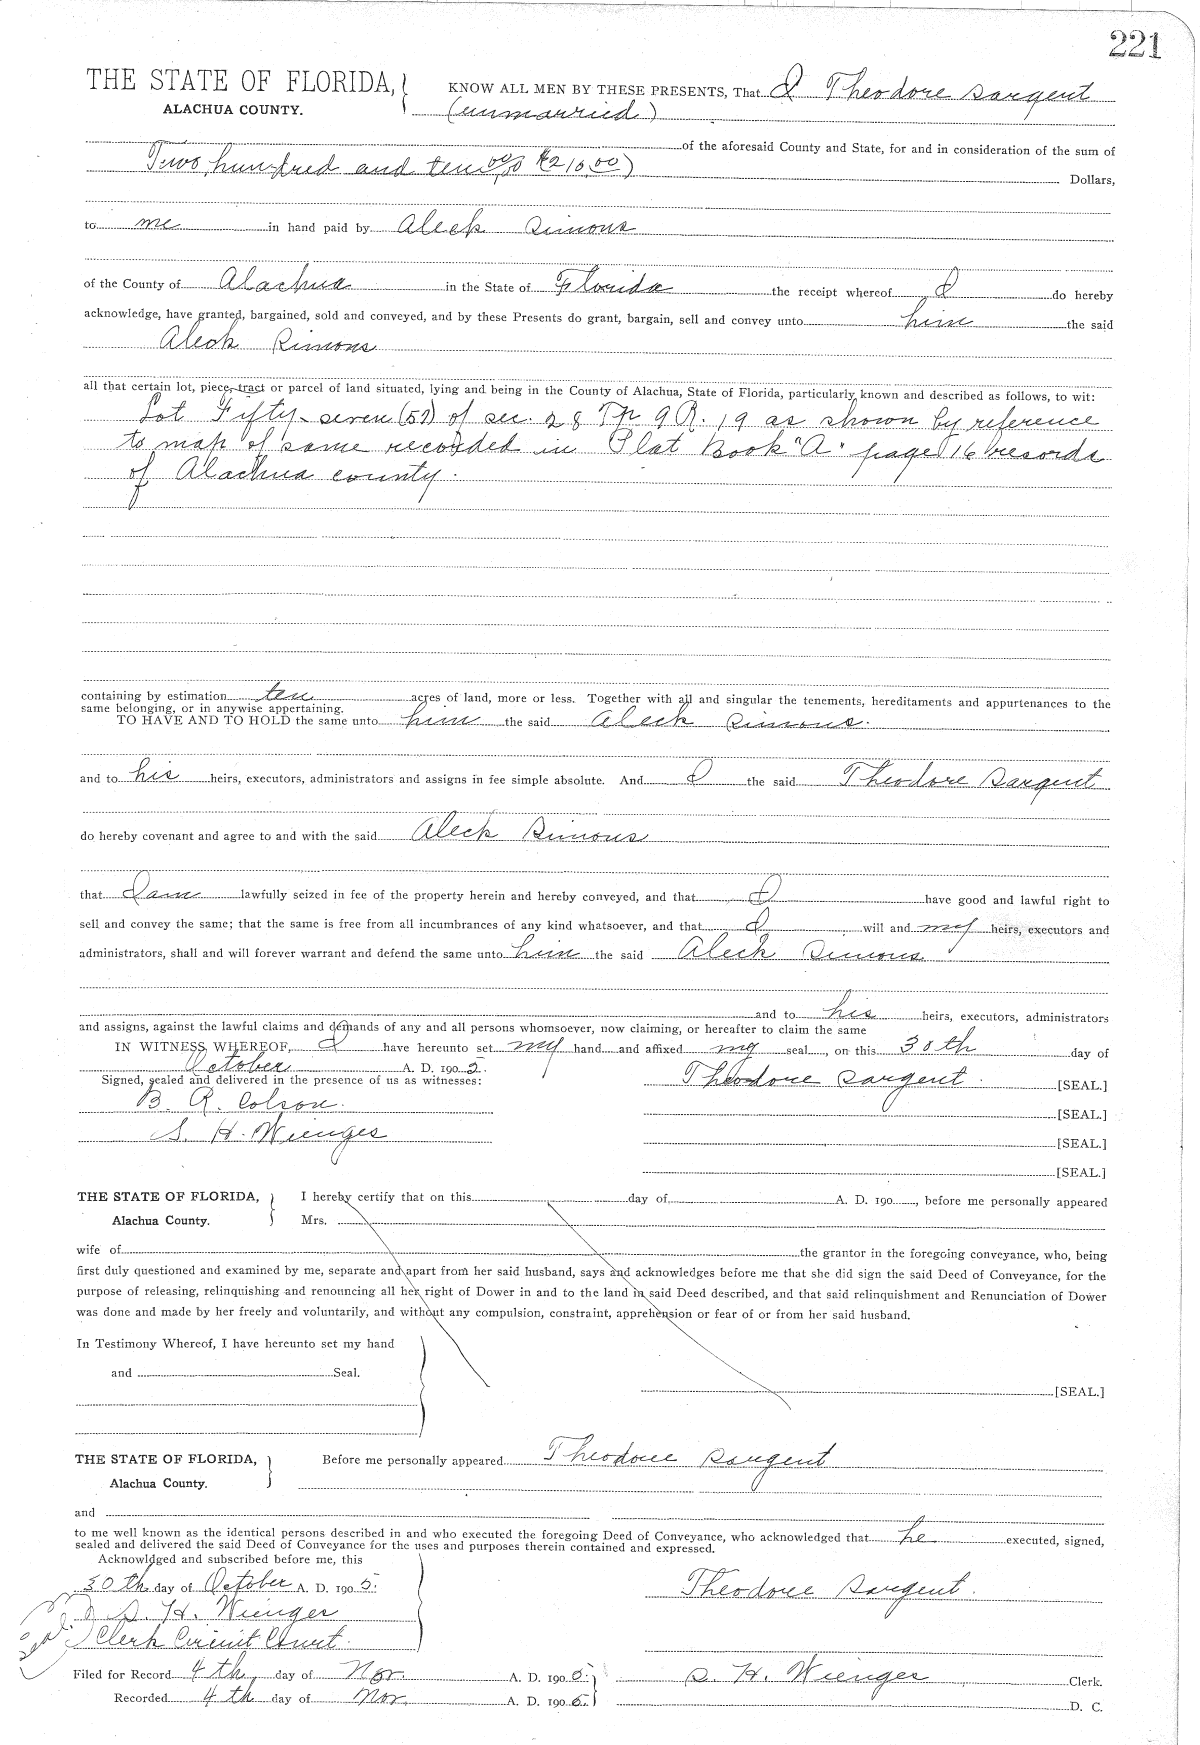 221
THE STATE OF FLORIDA, KNOW ALL MEN BY THESE PRESENTS, That I Theodore Sargent
ALACHUA COUNTY. (unmarried)
of the aforesaid County and State, for and in consideration of the sum of
Two hundred and ten 00/00 ($210.00) Dollars,
to me in hand paid by Aleck Simons
of the County of Alachua in the State of Florida the receipt whereof I do hereby
acknowledge, have granted, bargained, sold and conveyed, and by these Presents do grant, bargain, sell and convey unto him the said
Aleck Simons
all that certain lot, piece, tract or parcel of land situated, lying and being in the County of Alachua, State of Florida, particularly known and described as follows, to wit:
Lot Fifty-seven (57) of sec. 28 Tp 9 R. 19 as shown by reference
to map of same recorded in Plat Book "A" page 16 records
of Alachua county.
containing by estimation ten acres of land, more or less. Together with all and singular the tenements, hereditaments and appurtenances to the
same belonging, or in anywise appertaining.
TO HAVE AND TO HOLD the same unto him the said Aleck Simons.
and to his heirs, executors, administrators and assigns in fee simple absolute. And I the said Theodore Sargent
do hereby covenant and agree to and with the said Aleck Simons
that I am lawfully seized in fee of the property herein and hereby conveyed, and that I have good and lawful right to
sell and convey the same; that the same is free from all incumbrances of any kind whatsoever, and that I will and my heirs, executors and
administrators, shall and will forever warrant and defend the same unto him the said Aleck Simons
and to his heirs, executors, administrators
and assigns, against the lawful claims and demands of any and all persons whomsoever, now claiming, or hereafter to claim the same
IN WITNESS WHEREOF, I have hereunto set my hand and affixed my seal, on this 30th day of
October A. D. 1905.
Signed, sealed and delivered in the presence of us as witnesses: Theodore Sargent. [SEAL.]
B. R. Colson. [SEAL.]
S. H. Wienges [SEAL.]
[SEAL.]
THE STATE OF FLORIDA, I hereby certify that on this day of A. D. 190 , before me personally appeared
Alachua County. Mrs.
wife of the grantor in the foregoing conveyance, who, being
first duly questioned and examined by me, separate and apart from her said husband, says and acknowledges before me that she did sign the said Deed of Conveyance, for the
purpose of releasing, relinquishing and renouncing all her right of Dower in and to the land in said Deed described, and that said relinquishment and Renunciation of Dower
was done and made by her freely and voluntarily, and without any compulsion, constraint, apprehension or fear of or from her said husband.
In Testimony Whereof, I have hereunto set my hand
and Seal.
[SEAL.]
THE STATE OF FLORIDA, Before me personally appeared Theodore Sargent
Alachua County.
and
to me well known as the identical persons described in and who executed the foregoing Deed of Conveyance, who acknowledged that he executed, signed,
sealed and delivered the said Deed of Conveyance for the uses and purposes therein contained and expressed.
Acknowldged and subscribed before me, this
30th day of October A. D. 1905. Theodore Sargent.
S. H. Wienges
Seal. Clerk Circuit Court.
Filed for Record 4th day of Nov. A. D. 1905. S. H. Wienges Clerk.
Recorded 4th day of Nov. A. D. 1905. D. C.